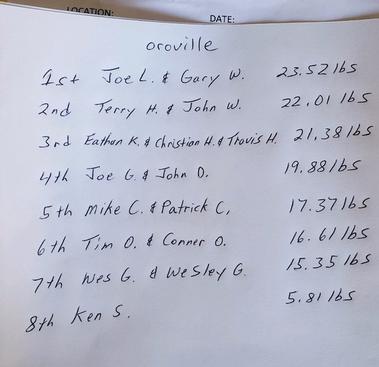 LOCATION:
DATE:
oroville
1st Joe L. & Gary W. 23.52 lbs
2nd Terry H. & John W. 22.01 lbs
3rd Eathan K. & Christian H. & Travis H. 21.38 lbs
4th Joe G. & John D. 19.88 lbs
5th Mike C. & Patrick C, 17.37 lbs
6th Tim O. & Conner O. 16.61 lbs
7th Wes G. & Wesley G. 15.35 lbs
8th Ken S. 5.81 lbs